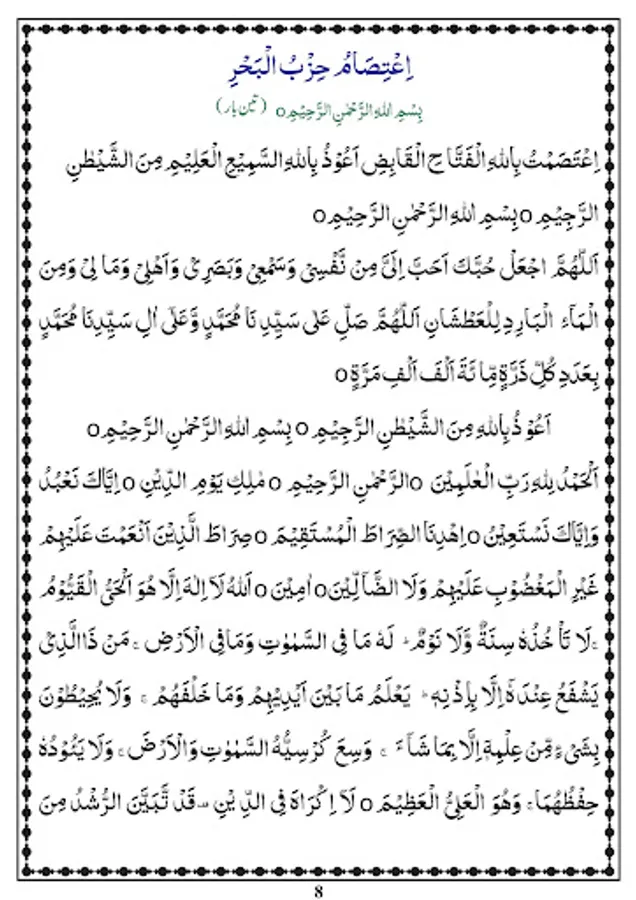 اِعْتِصَامُ حِزْبُ الْبَحْرِ
بِسْمِ اللهِ الرَّحْمٰنِ الرَّحِيْمِ o (تین بار)
اِعْتَصَمْتُ بِاللهِ الْفَتَّاحِ الْقَابِضِ اَعُوْذُ بِاللهِ السَّمِيْعِ الْعَلِيْمِ مِنَ الشَّيْطٰنِ
الرَّجِيْمِ o بِسْمِ اللهِ الرَّحْمٰنِ الرَّحِيْمِ o
اَللّٰهُمَّ اجْعَلْ حُبَّكَ اَحَبَّ اِلَىَّ مِنْ نَّفْسِىْ وَسَمْعِىْ وَبَصَرِىْ وَاَهْلِىْ وَمَا لِىْ وَمِنَ
الْمَآءِ الْبَارِدِ لِلْعَطْشَانِ اَللّٰهُمَّ صَلِّ عَلٰى سَيِّدِنَا مُحَمَّدٍ وَّعَلٰٓى اٰلِ سَيِّدِنَا مُحَمَّدٍ
بِعَدَدِ كُلِّ ذَرَّةٍ مِّائَةَ اَلْفَ اَلْفِ مَرَّةٍ o
اَعُوْذُ بِاللهِ مِنَ الشَّيْطٰنِ الرَّجِيْمِ o بِسْمِ اللهِ الرَّحْمٰنِ الرَّحِيْمِ o
اَلْحَمْدُ لِلهِ رَبِّ الْعٰلَمِيْنَ o الرَّحْمٰنِ الرَّحِيْمِ o مٰلِكِ يَوْمِ الدِّيْنِ o اِيَّاكَ نَعْبُدُ
وَاِيَّاكَ نَسْتَعِيْنُ o اِهْدِنَا الصِّرَاطَ الْمُسْتَقِيْمَ o صِرَاطَ الَّذِيْنَ اَنْعَمْتَ عَلَيْهِمْ
غَيْرِ الْمَغْضُوْبِ عَلَيْهِمْ وَلَا الضَّآلِّيْنَ o اٰمِيْنَ o اَللهُ لَآ اِلٰهَ اِلَّا هُوَ اَلْحَىُّ الْقَيُّوْمُ
ۚ لَا تَأْخُذُهٗ سِنَةٌ وَّلَا نَوْمٌ ؕ لَهٗ مَا فِى السَّمٰوٰتِ وَمَا فِى الْاَرْضِ ۚ مَنْ ذَا الَّذِىْ
يَشْفَعُ عِنْدَهٗٓ اِلَّا بِاِذْنِهٖ ؕ يَعْلَمُ مَا بَيْنَ اَيْدِيْهِمْ وَمَا خَلْفَهُمْ ۚ وَلَا يُحِيْطُوْنَ
بِشَىْءٍ مِّنْ عِلْمِهٖٓ اِلَّا بِمَا شَآءَ ۚ وَسِعَ كُرْسِيُّهُ السَّمٰوٰتِ وَالْاَرْضَ ۚ وَلَا يَئُوْدُهٗ
حِفْظُهُمَا ۚ وَهُوَ الْعَلِىُّ الْعَظِيْمُ o لَآ اِكْرَاهَ فِى الدِّيْنِ ۙ قَدْ تَّبَيَّنَ الرُّشْدُ مِنَ
8